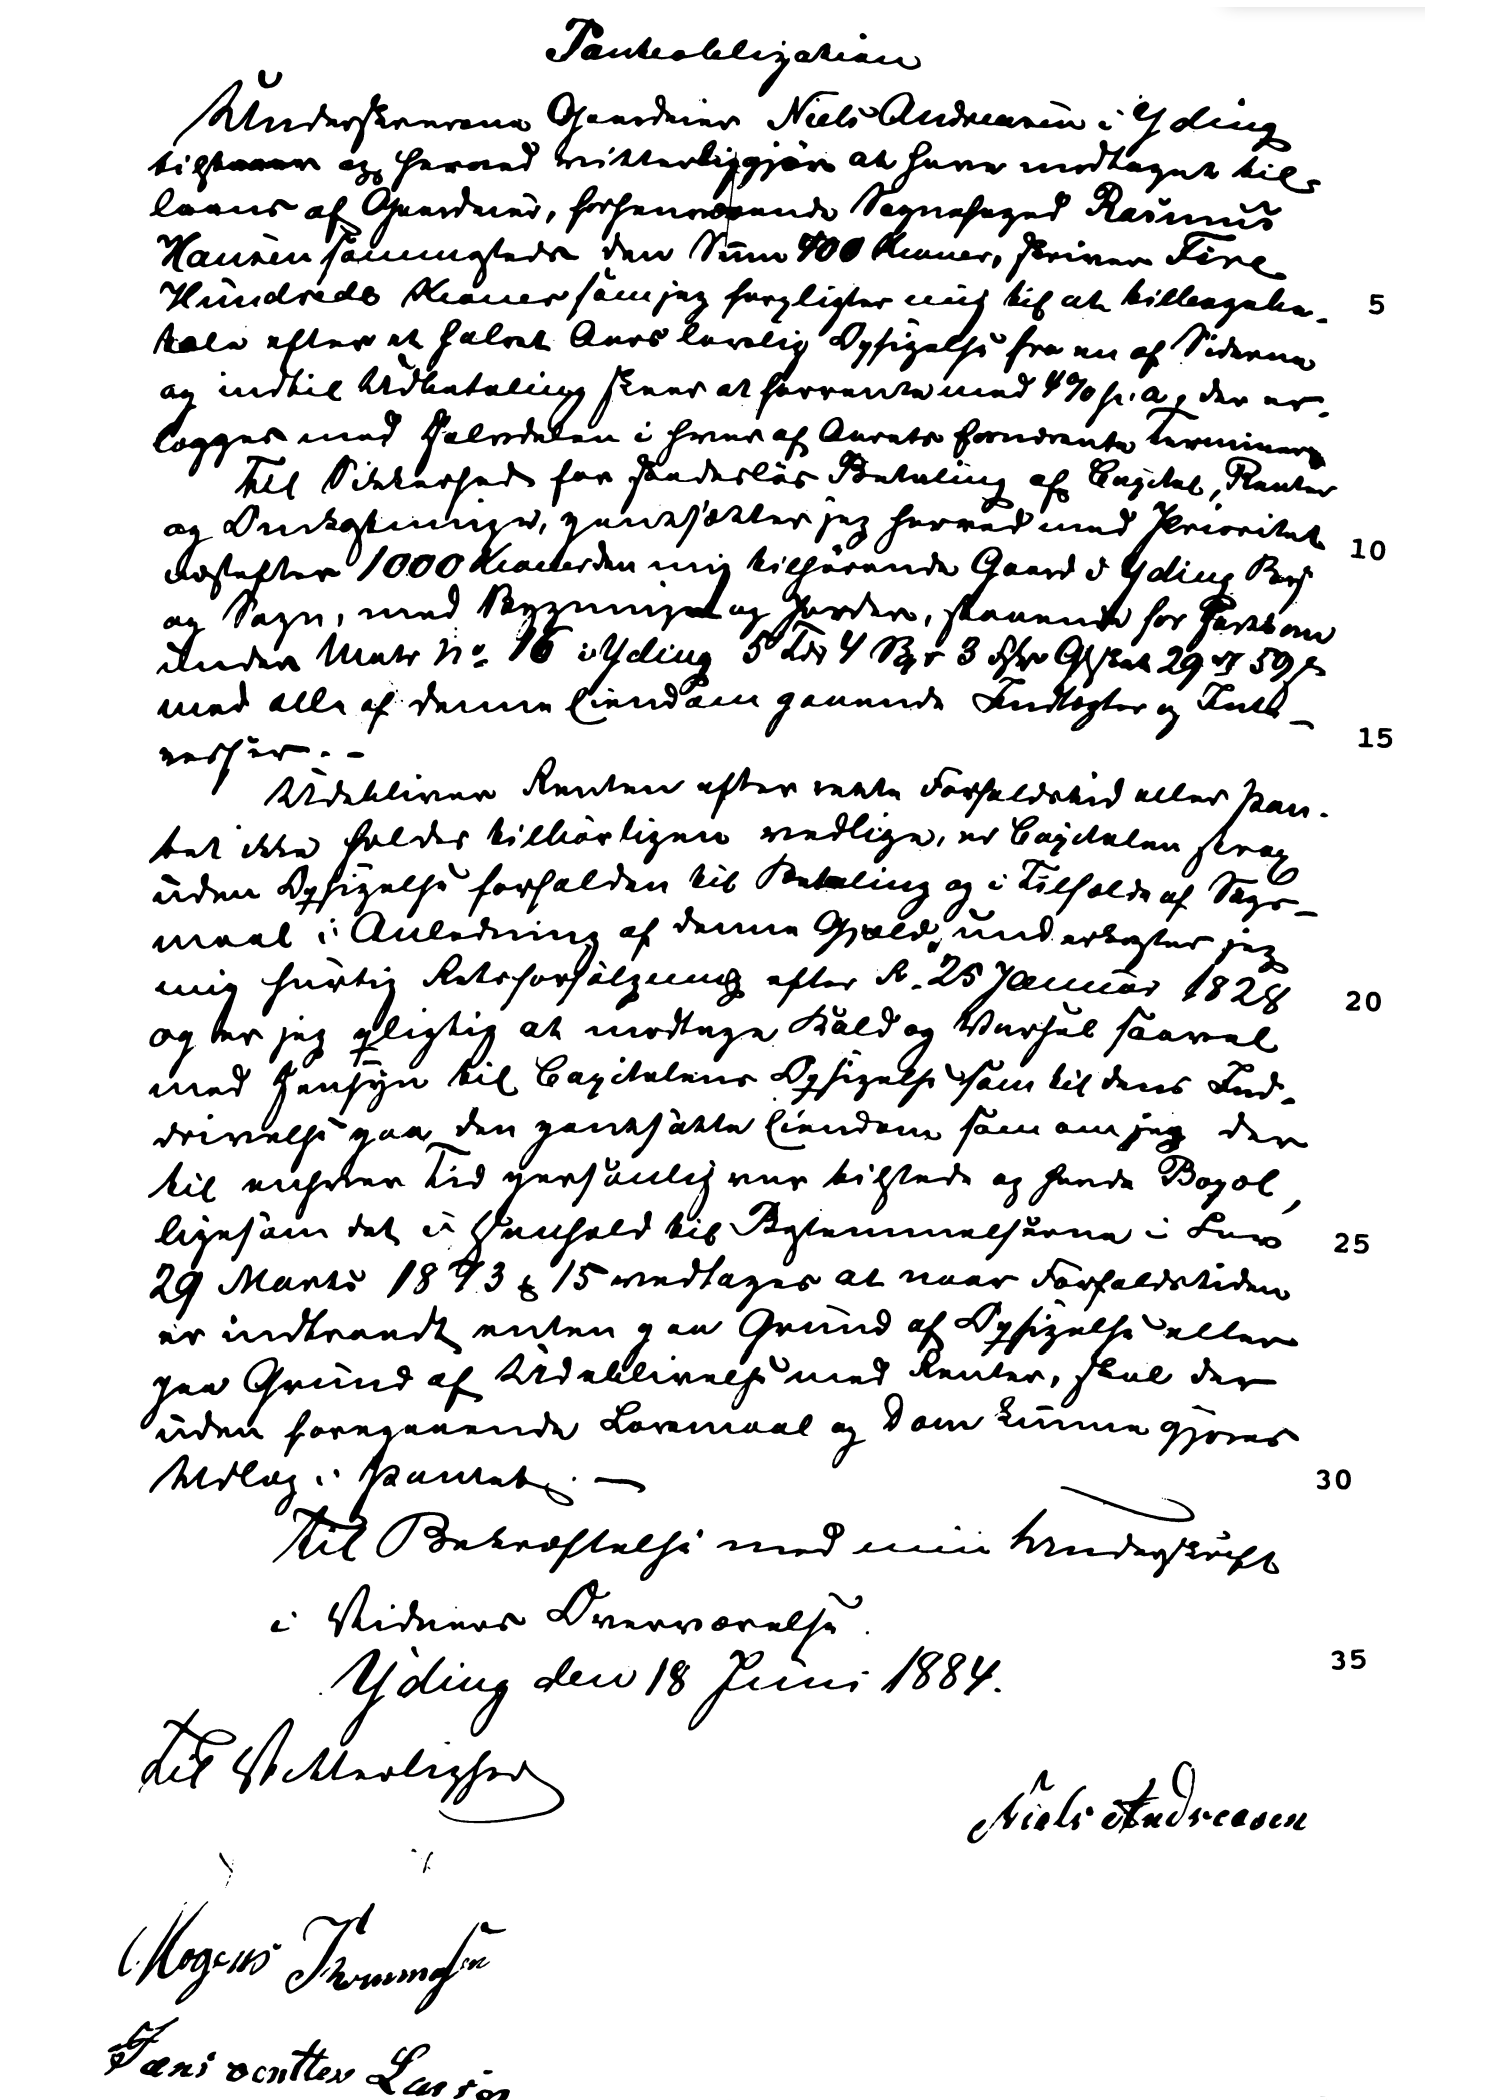 Panteobligation
Underskrevne Gaardeier Niels Andreasen i Yding
tilstaaer og herved vitterliggjör at have modtaget til
laans af Gaardeier, forhenværende Sognefoged Rasmus
Hansen sammesteds den Sum 400 Kroner, skriver Fire
Hundrede Kroner som jeg forpligter mig til at tilbagebe-
5
tale efter et halvt Aars lovlig Opsigelse fra en af Siderne
og indtil Udbetaling skeer at forrente med 4% p. a, der er-
lægges med Halvdelen i hver af Aarets forordnede Terminer
Til Sikkerhed for skadeslös Betaling af Capital, Renter
og Omkostninger, pantsætter jeg herved med Prioritet
10
næstefter 1000 Kroner den mig tilhörende Gaard i Yding By
og Sogn, med Bygninger og Jorder, staaende for Hartkorn
under Matr No 16 i Yding 5 Tdr 4 Skp 3 Fjk Glskat 29 rd 59 s
med alle af denne Eiendom gaaende Indtægter og Inte-
15
resser. -
Udebliver Renten efter rette Forfaldstid eller Pan-
tet ikke holdes tilbörligen vedlige, er Capitalen strax
uden Opsigelse forfalden til Betaling og i Tilfælde af Sögs-
maal i Anledning af denne Gjæld, underkaster jeg
mig hurtig Retsforfölgning efter Fr. 25 Januar 1828
20
og er jeg pligtig at modtage Kald og Varsel saavel
med Hensyn til Capitalens Opsigelse som til dens Ind-
drivelse paa den pantsatte Eiendom som om jeg der
til enhver Tid personlig var tilstede og havde Bopæl,
ligesom det i Henhold til Bestemmelserne i Lov
25
29 Marts 1873 § 15 vedtages at naar Forfaldstiden
er indtraadt enten paa Grund af Opsigelse eller
paa Grund af Udeblivelse med Renter, skal der
uden foregaaende Lovmaal og Dom kunne gjöres
Udlæg i Pantet. —
30
Til Bekræftelse med min Underskrift
i Vidners Overværelse.
Yding den 18 Juni 1884.
35
Til Vitterlighed
Niels Andreasen
Mogens Thommesen
Larsen